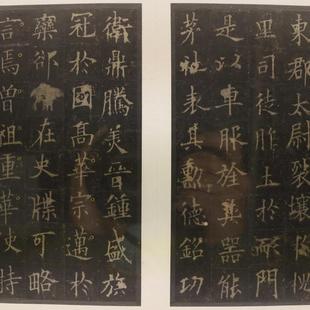 東郡太尉裂壤於槐
里司徒胙土於耏門
是以車服旌其器能
茅社表其勳德銘功
衛鼎騰美晉鍾盛族
冠於國高華宗邁於
欒郤在史牒可略
言焉曾祖重華使持